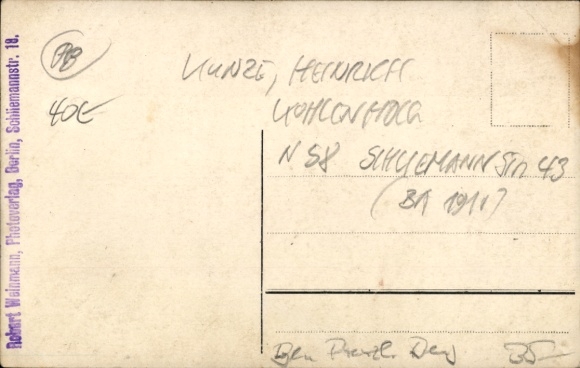 Robert Weinmann, Photoverlag, Berlin, Schliemannstr. 18.
PB
40€
KUNZE, HEINRICH
KOHLENHDLG
N 58 SCHLIEMANNSTR 43
(BA 1911)
Bln Prenzl. Berg 35-